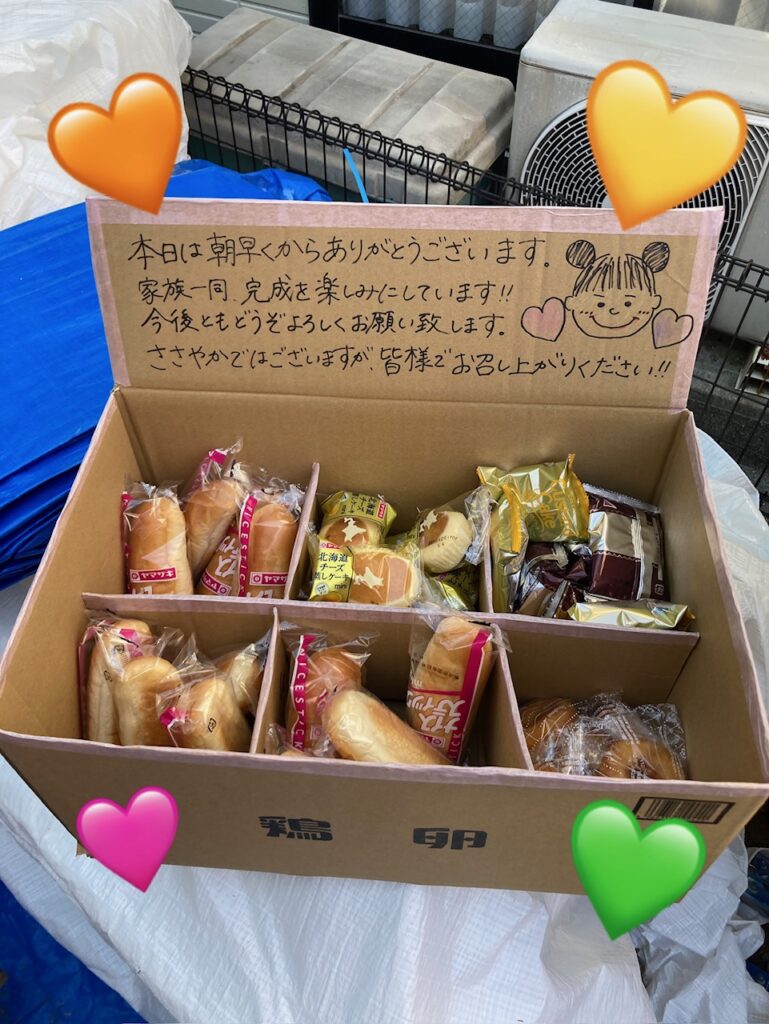 本日は朝早くからありがとうございます。
家族一同、完成を楽しみにしています!!
今後ともどうぞよろしくお願い致します。
ささやかではございますが、皆様でお召し上がりください!!
北海道
チーズ
蒸しケーキ
NICESTICK
ナイス
スティック
鶏卵